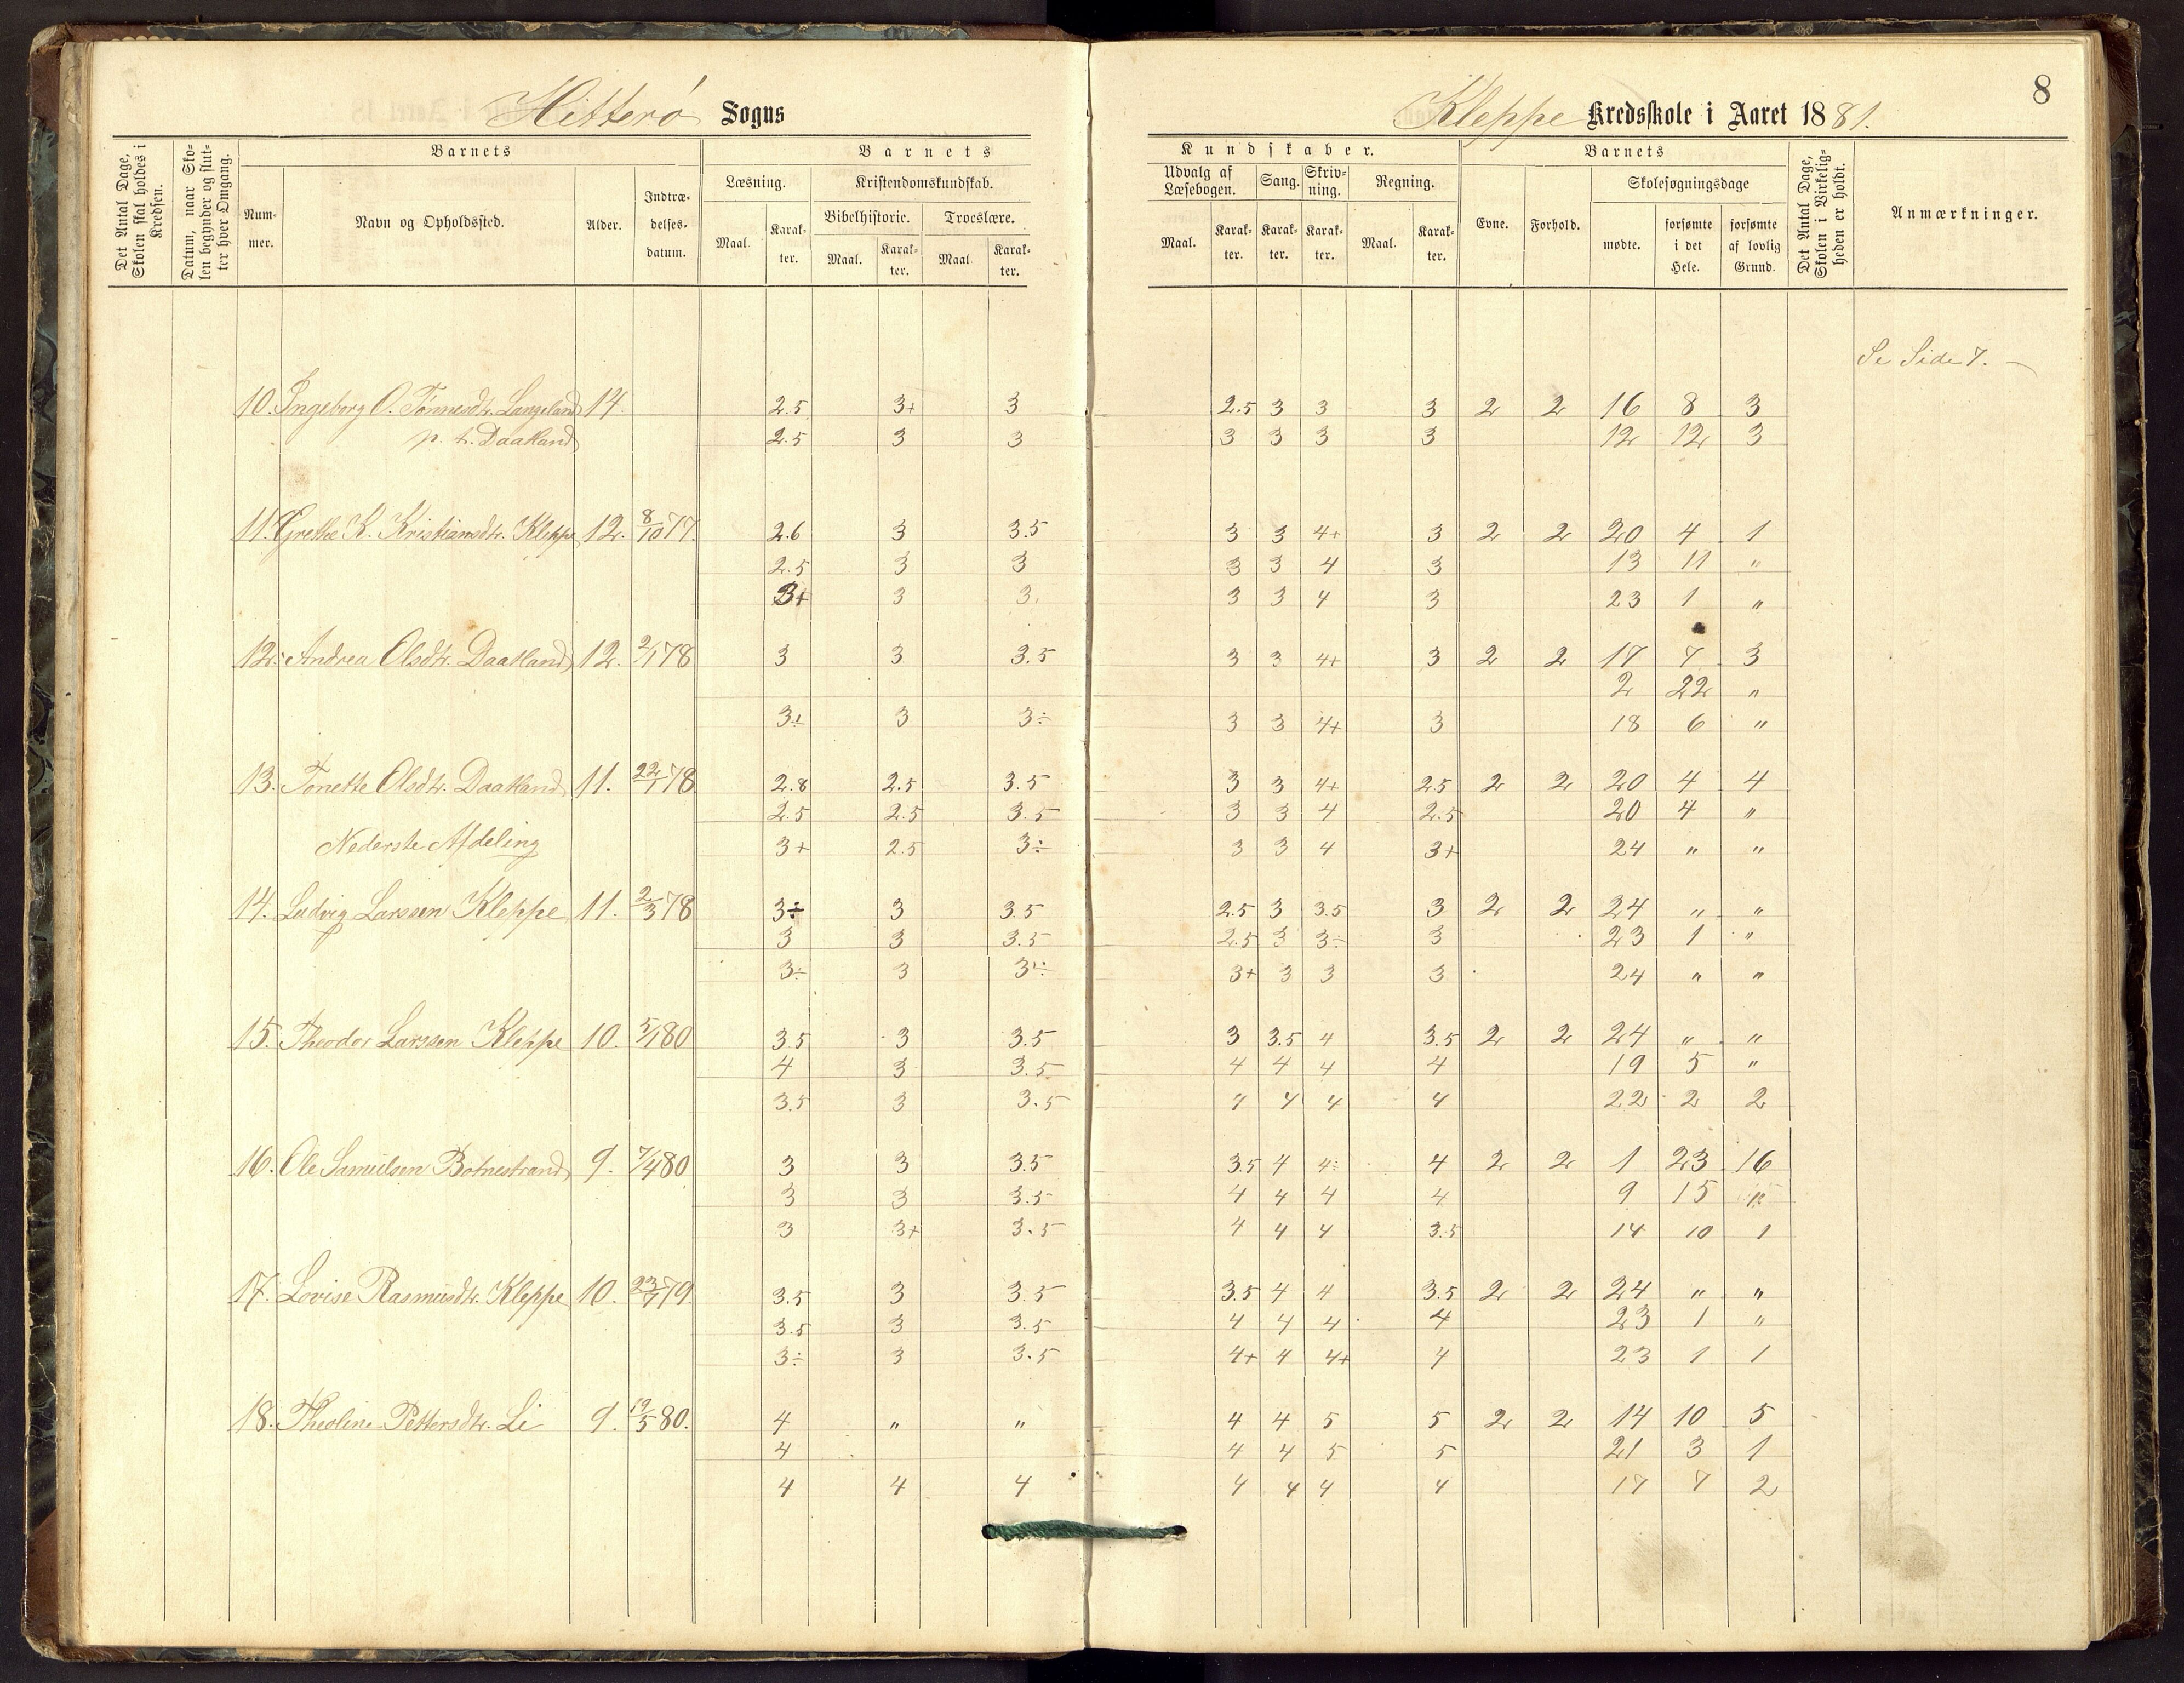 8
Hitterø Sogns Kleppe Kredsskole i Aaret 1881.
Det Antal Dage, Skolen skal holdes i Kredsen.
Datum, naar Skolen begynder og slutter hver Omgang.
Barnets
Nummer.
Navn og Opholdssted.
Alder.
Indtrædelsesdatum.
Barnets Kundskaber.
Læsning.
Maal. Karakter.
Kristendomskundskab.
Bibelhistorie. Troeslære.
Maal. Karakter. Maal. Karakter.
Udvalg af Læsebogen. Sang. Skrivning. Regning.
Maal. Karakter. Karakter. Karakter. Maal. Karakter.
Barnets
Evne. Forhold.
Skolesøgningsdage
mødte. forsømte i det Hele. forsømte af lovlig Grund.
Det Antal Dage, Skolen i Virkeligheden er holdt.
Anmærkninger.
Se Side 7.
10. Ingeborg O. Tønnesdtr. Langeland 14. 2.5 3+ 3 2.5 3 3 3 2 2 16 8 3
p. t. Daatland 2.5 3 3 3 3 3 3 12 12 3
11. Grethe K. Kristiansdtr. Kleppe 12. 8/10 77. 2.6 3 3.5 3 3 4+ 3 2 2 20 4 1
2.5 3 3 3 3 4 3 13 11 "
3+ 3 3. 3 3 4 3 23 1 "
12. Andrea Olsdtr. Daatland 12. 2/1 78 3 3 3.5 3 3 4+ 3 2 2 17 7 3
2 22 "
3+ 3 3÷ 3 3 4+ 3 18 6 "
13. Tonette Olsdtr. Daatland 11. 22/1 78 2.8 2.5 3.5 3 3 4+ 2.5 2 2 20 4 4
2.5 2.5 3.5 3 3 4 2.5 20 4 "
Nederste Afdeling 3+ 2.5 3÷ 3 3 4 3+ 24 " "
14. Ludvig Larssen Kleppe 11. 2/3 78 3÷ 3 3.5 2.5 3 3.5 3 2 2 24 " "
3 3 3.5 2.5 3 3÷ 3 23 1 "
3÷ 3 3÷ 3+ 3 3 3 24 " "
15. Theodor Larssen Kleppe 10. 5/1 80 3.5 3 3.5 3 3.5 4 3.5 2 2 24 " "
4 3 3.5 4 4 4 4 19 5 "
3.5 3 3.5 4 4 4 4 22 2 2
16. Ole Samuelsen Botnestrand 9. 7/4 80 3 3 3.5 3.5 4 4÷ 4 2 2 1 23 16
3 3 3.5 4 4 4 4 9 15 "
3 3+ 3.5 4 4 4 3.5 14 10 1
17. Lovise Rasmusdtr. Kleppe 10. 23/7 79. 3.5 3 3.5 3.5 4 4 3.5 2 2 24 " "
3.5 3 3.5 4 4 4 4 23 1 "
3÷ 3 3.5 4+ 4 4+ 4 23 1 1
18. Theoline Pettersdtr. Li 9. 19/5 80. 4 " " 4 4 5 5 2 2 14 10 5
4 4 4 5 5 21 3 1
4 4 4 4 4 4 4 17 7 2